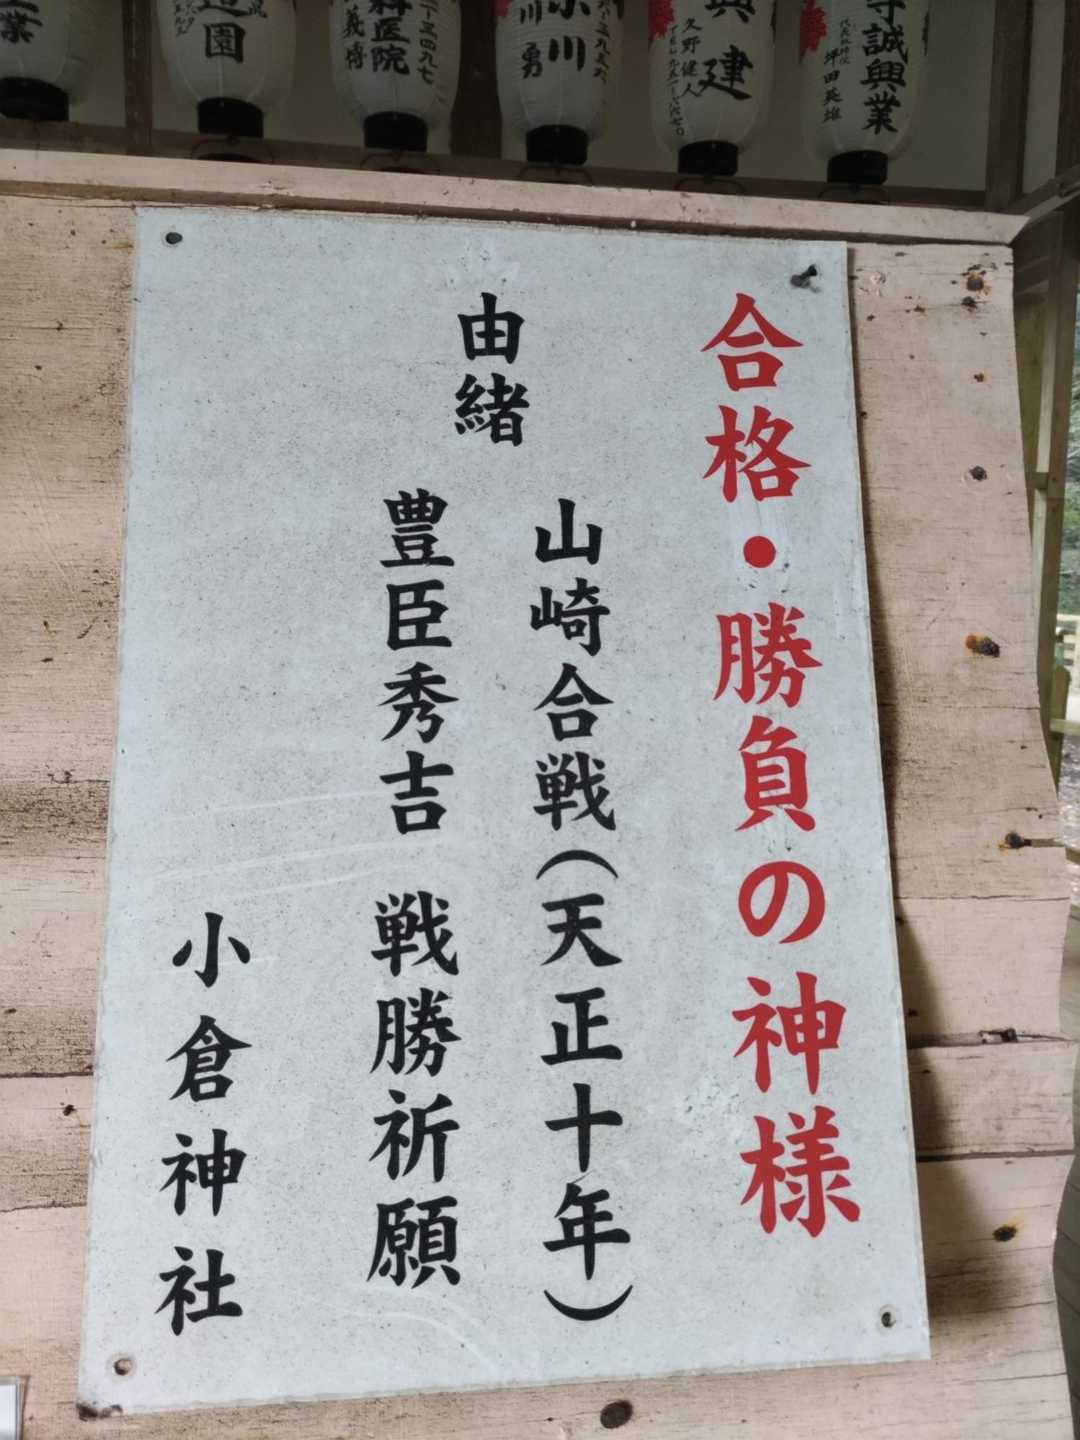 合格・勝負の神様
由緒
山崎合戦(天正十年)
豊臣秀吉 戦勝祈願
小倉神社
誠興業
坪田英雄
興建
久野健人
小川
川勇
科医院
義博
造園
工業